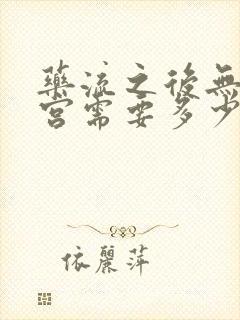 藥流之後無
宮需要多少
依麗萍